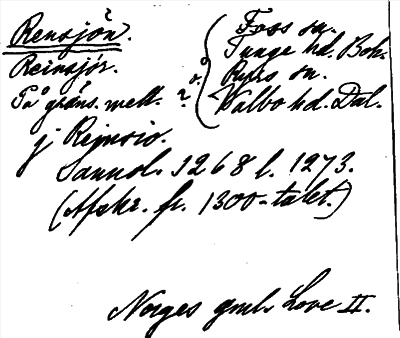 Rensjön.
Reinsjor.
På gräns. mell.
Foss sn.
Tunge hd. Boh.
o.
Ryrs sn.
Valbo hd. Dal.
j Reinsio.
Sannol. 1268 l. 1273.
(Afskr. fr. 1300-talet.)
Norges gml. Love II.